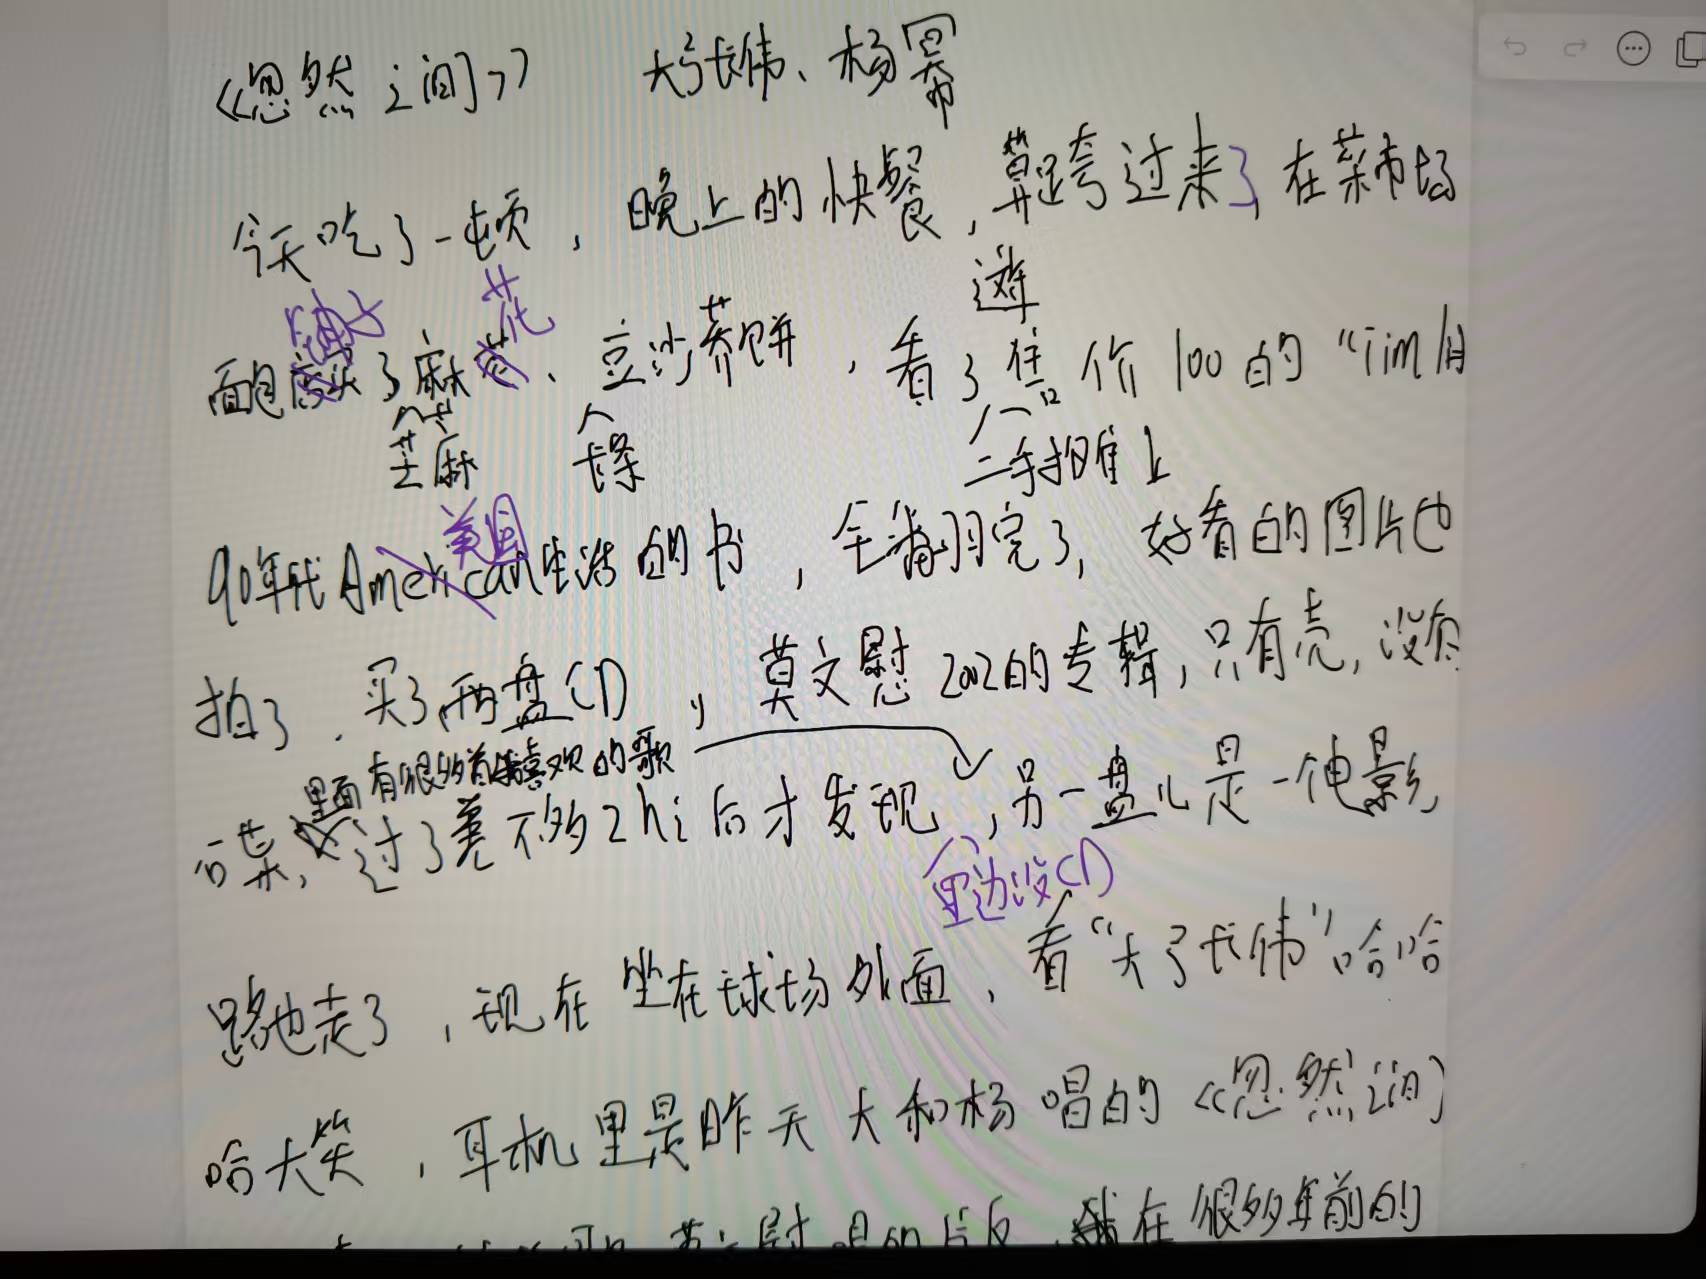 《忽然之间》 大张伟、杨幂
今天吃了一顿，晚上的快餐，算是跨过来了，在菜市场
遊
面包铺子买了麻花、豆沙荞饼，看了售价100的“Tim
芝麻 卡 二手摊上
90年代American美国生活的书，全翻完了，好看的图片也
拍了．买了两盘CD，莫文蔚2002的专辑，只有壳，没有
里面有很多首我喜欢的歌
过了差不多2hi后才发现，另一盘儿是一个电影，
里边没CD
路也走了，现在坐在球场外面，看“大了长伟”哈哈
哈大笑，耳机里是昨天大和杨唱的《忽然之间》
在很多年前的